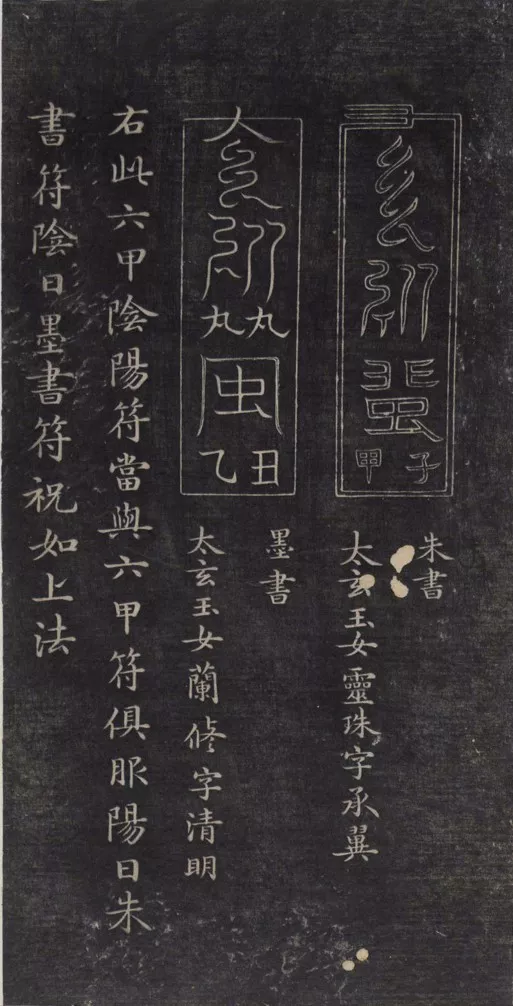 甲子
朱書
太玄玉女靈珠字承翼
丸丸
乙丑
墨書
太玄玉女蘭修字清明
右此六甲陰陽符當與六甲符俱服陽日朱
書符陰日墨書符祝如上法